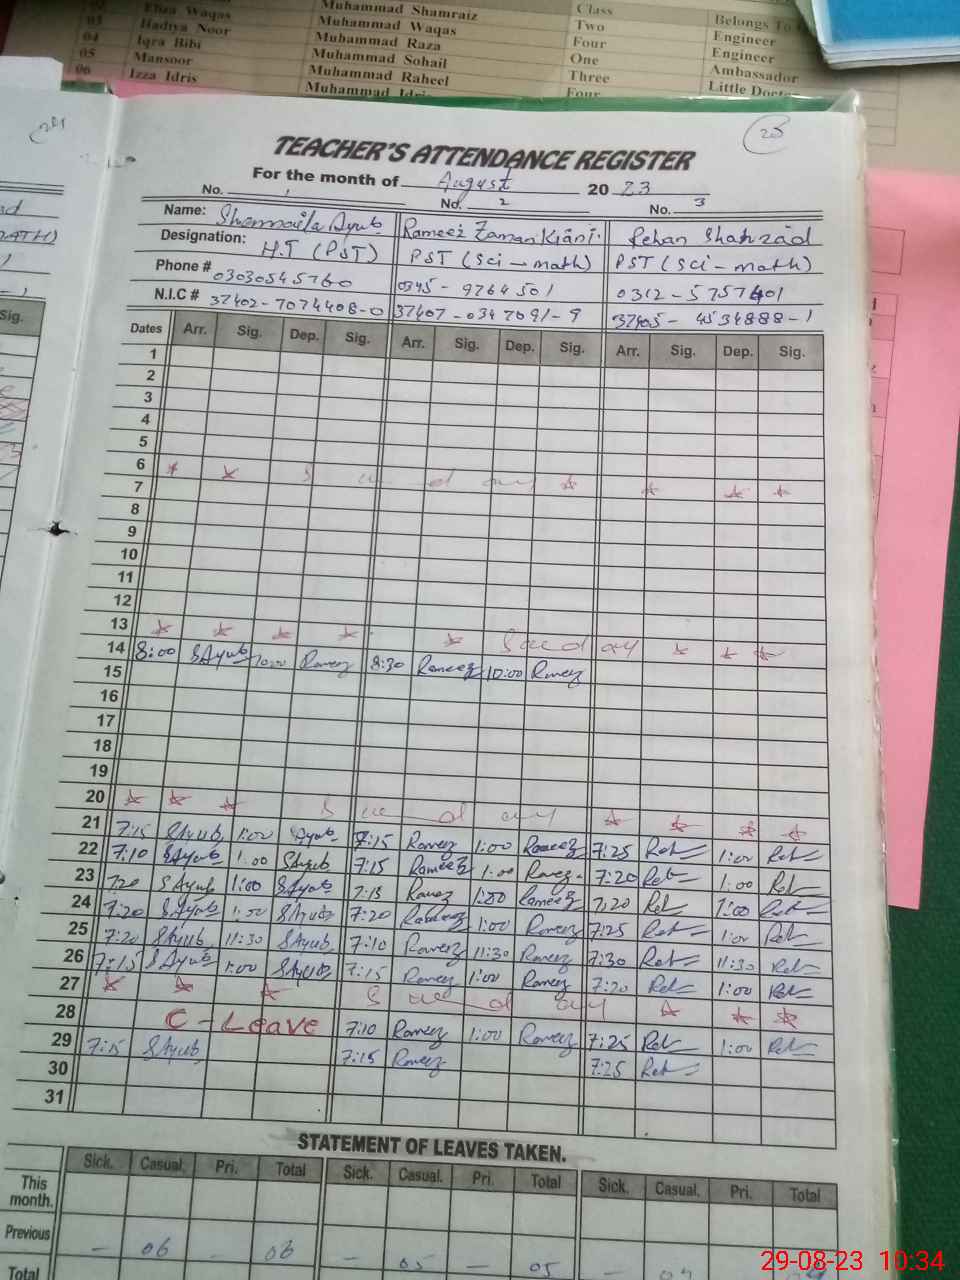 02 Eliza Waqas Muhammad Shamraiz Class
03 Hadiya Noor Muhammad Waqas Two Belongs To
04 Iqra Bibi Muhammad Raza Four Engineer
05 Mansoor Muhammad Sohail One Engineer
06 Izza Idris Muhammad Raheel Three Ambassador
Muhammad Idris Four Little Doctor
20
TEACHER'S ATTENDANCE REGISTER
For the month of August 20 23
No. 1 No. 2 No. 3
Name: Shamaila Ayub Rameez Zaman Kiani Rehan Shahzad
Designation: H.T (PST) PST (Sci - math) PST (Sci - math)
Phone # 03030545760 0345 - 9764501 0312 - 5757401
N.I.C # 37402-7074408-0 37407-0347091-9 37405- 4534888-1
Dates Arr. Sig. Dep. Sig. Arr. Sig. Dep. Sig. Arr. Sig. Dep. Sig.
1
2
3
4
5
6 Sunday
7
8
9
10
11
12
13 Sunday
14 8:00 SAyub 10:00 Rameez 8:30 Rameez 10:00 Rameez
15
16
17
18
19
20 Sunday
21 7:15 SAyub 1:00 Ayub 7:15 Rameez 1:00 Rameez 7:25 Reh 1:00 Reh
22 7:10 SAyub 1:00 SAyub 7:15 Rameez 1:00 Rameez 7:20 Reh 1:00 Reh
23 7:20 SAyub 1:00 SAyub 7:15 Rameez 1:00 Rameez 7:20 Reh 1:00 Reh
24 7:20 SAyub 1:00 SAyub 7:20 Rameez 1:00 Rameez 7:25 Reh 1:00 Reh
25 7:20 SAyub 11:30 SAyub 7:10 Rameez 11:30 Rameez 7:30 Reh 11:30 Reh
26 7:15 SAyub 1:00 SAyub 7:15 Rameez 1:00 Rameez 7:20 Reh 1:00 Reh
27 Sunday
28 C-Leave 7:10 Rameez 1:00 Rameez 7:25 Reh 1:00 Reh
29 7:15 SAyub 7:15 Rameez 7:25 Reh
30
31
STATEMENT OF LEAVES TAKEN.
Sick. Casual. Pri. Total Sick. Casual. Pri. Total Sick. Casual. Pri. Total
This month.
Previous - 06 - 06 - 05 - 05 -
Total
29-08-23 10:34